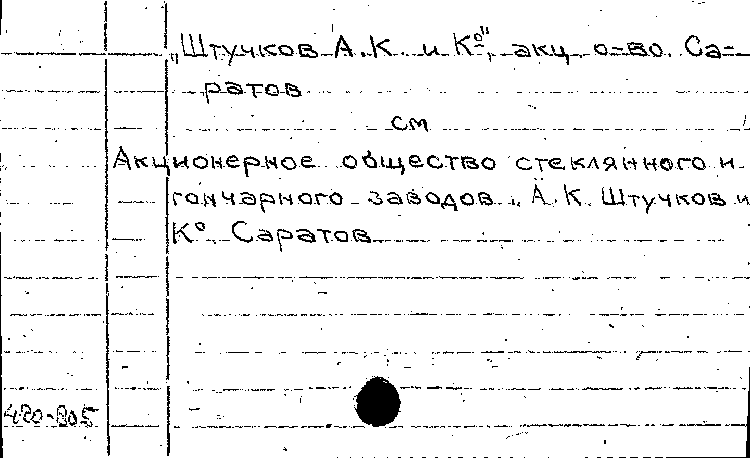 „Штучков А.К. и Кº", акц. о-во. Са-
ратов
см
Акционерное общество стеклянного и
гончарного заводов „А.К. Штучков и
Кº. Саратов
480-805